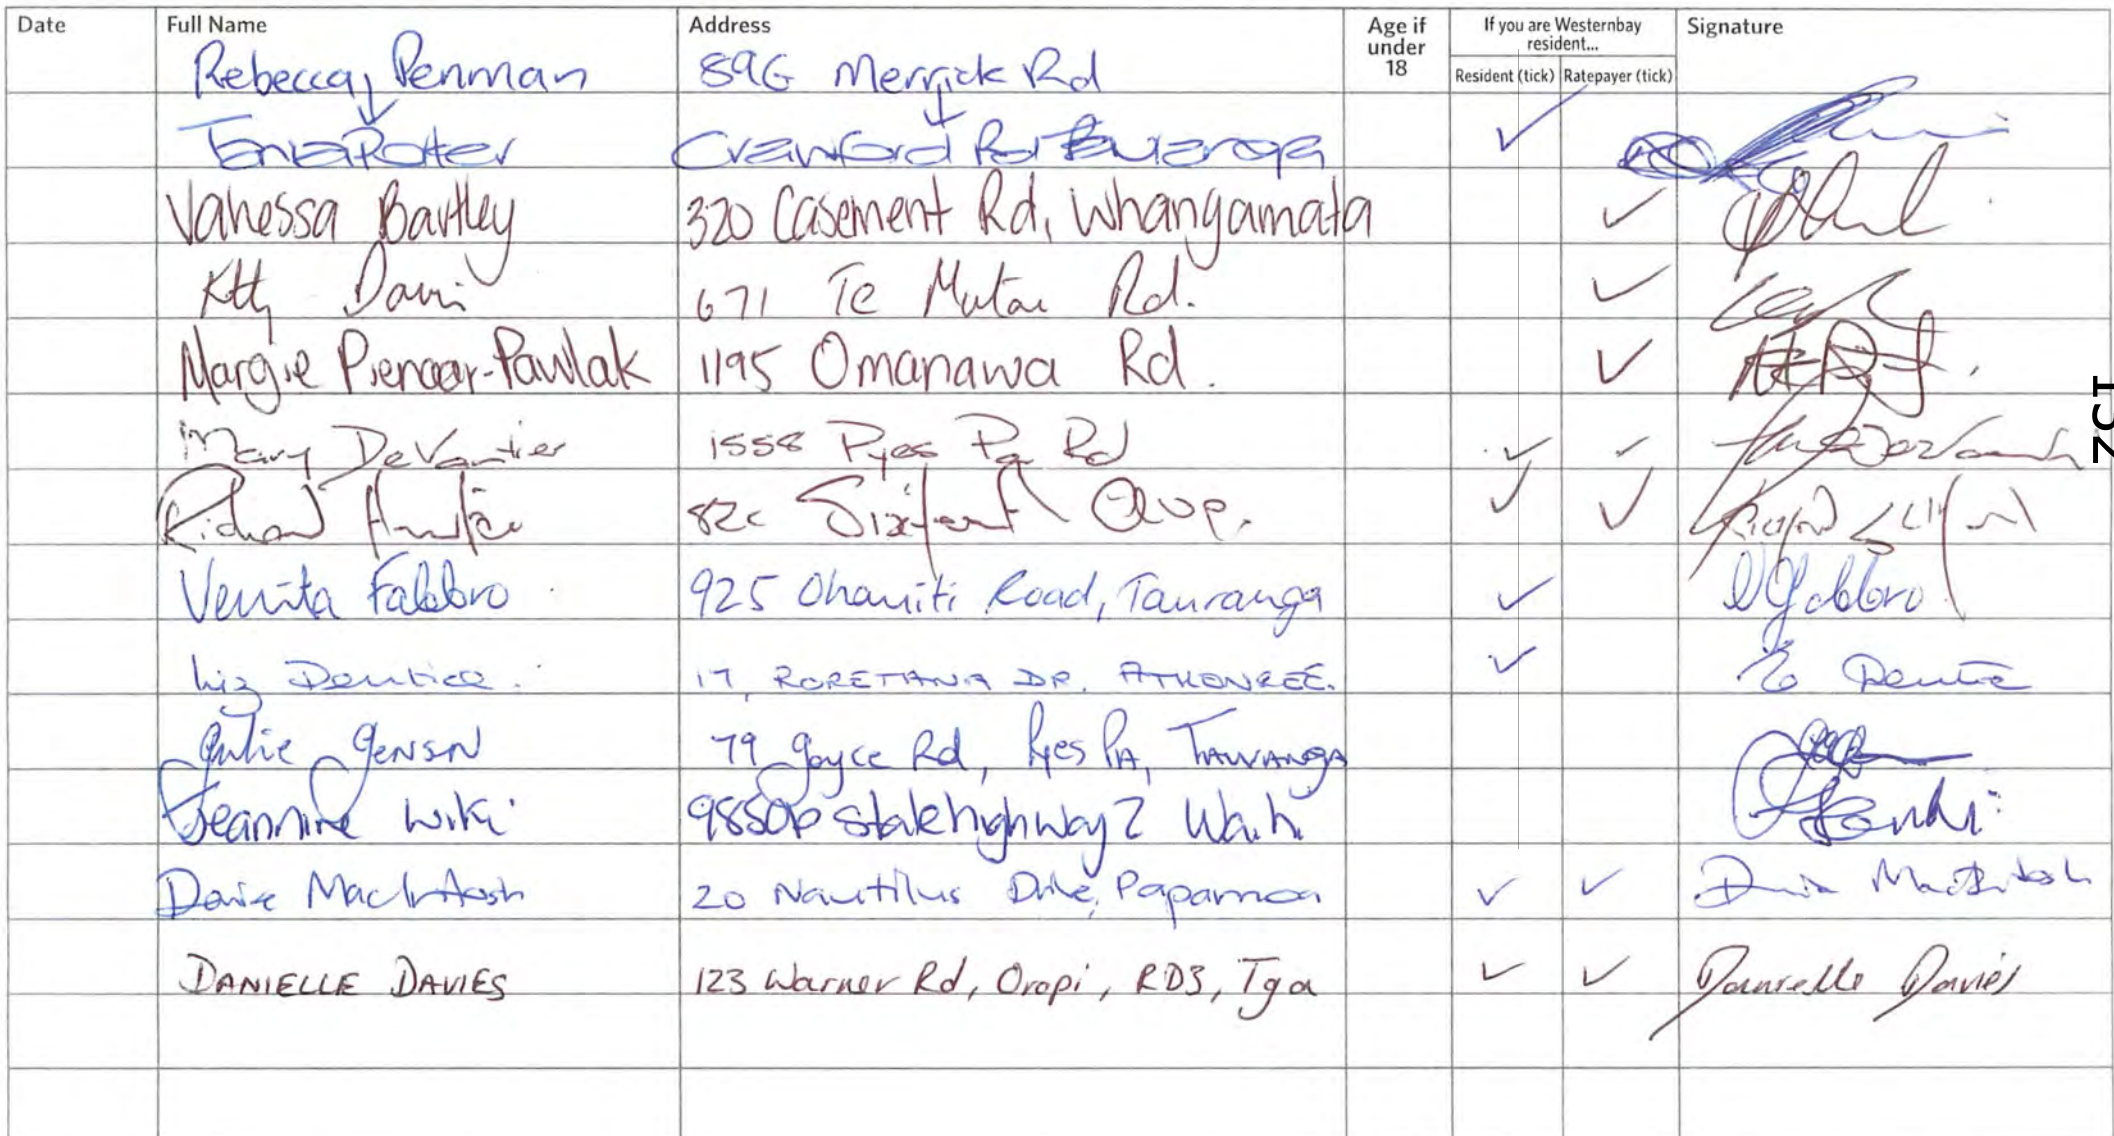 Date Full Name Address Age if under 18 If you are Westernbay resident... Signature
Resident (tick) Ratepayer (tick)
Rebecca Penman 896 Merrick Rd
Tania Potter Crawford Rd Tauranga ✓
Vanessa Bartley 320 Casement Rd, Whangamata ✓
671 Te Rd. ✓
Margie Pienaar-Pawlak 1195 Omanawa Rd. ✓
Mary DeVantier 1558 Pyes Pa Rd ✓ ✓
Richard 82c Ave. ✓ ✓
Venita Fabbro 925 Ohauiti Road, Tauranga ✓
Liz Dentice. 17, DR. ATHENREE. ✓ Dentice
Julie Jensn 79 Joyce Rd, Pyes PA, TAURANGA
Jeannine Wiki 9850 state highway 2 Waihi
MacIntosh 20 Nautilus Drive, Papamoa ✓ ✓ MacIntosh
DANIELLE DAVIES 123 Warner Rd, Oropi, RD3, Tga ✓ ✓ Danielle Davies
152